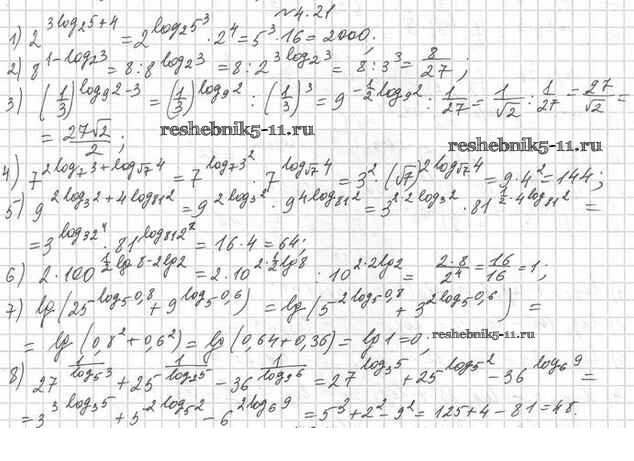 №4.21
1) 2^(3log₂5+4) = 2^(log₂5³) · 2⁴ = 5³ · 16 = 2000;
2) 8^(1-log₂3) = 8 : 8^(log₂3) = 8 : 2^(3log₂3) = 8 : 3³ = 8/27;
3) (1/3)^(log₉2-3) = (1/3)^(log₉2) : (1/3)³ = 9^(-1/2 log₉2) : 1/27 = 1/√2 : 1/27 = 27/√2 =
= 27√2/2;
reshebnik5-11.ru
reshebnik5-11.ru
4) 7^(2log₇3+log√₇4) = 7^(log₇3²) · 7^(log√₇4) = 3² · (√7)^(2log√₇4) = 9 · 4² = 144;
5) 9^(2log₃2+4log₈₁2) = 9^(2log₃2) · 9^(4log₈₁2) = 3^(2·2log₃2) · 81^(1/2·4log₈₁2) =
= 3^(log₃2⁴) · 81^(log₈₁2²) = 16 · 4 = 64;
6) 2 · 100^(1/2 lg8-2lg2) = 2 · 10^(2·1/2 lg8) · 10^(2·2lg2) = 2·8/2⁴ = 16/16 = 1;
7) lg(25^(log₅0,8) + 9^(log₅0,6)) = lg(5^(2log₅0,8) + 3^(2log₅0,6)) =
= lg(0,8² + 0,6²) = lg(0,64 + 0,36) = lg1 = 0;
reshebnik5-11.ru
8) 27^(1/log₅3) + 25^(1/log₂5) - 36^(1/log₉6) = 27^(log₃5) + 25^(log₅2) - 36^(log₆9) =
= 3^(3log₃5) + 5^(2log₅2) - 6^(2log₆9) = 5³ + 2² - 9² = 125 + 4 - 81 = 48.